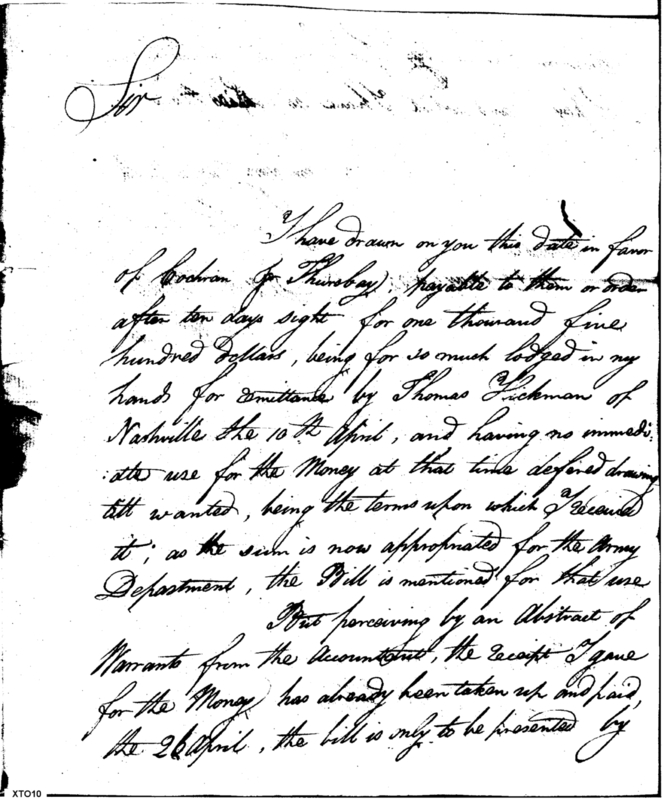 Sir
I have drawn on you this date in favor
of Cochran & Thursbay, payable to them or order
after ten days sight for one thousand five
hundred Dollars, being for so much lodged in my
hands for remittance by Thomas Hickman of
Nashville the 10th April, and having no immedi
ate use for the Money at that time defered drawing
till wanted, being the terms upon which I received
it; as the sum is now appropriated for the Army
Department, the Bill is mentioned for that use
But perceiving by an Abstract of
Warrants from the Accountant, the receipt I gave
for the Money has already been taken up and paid,
the 26 April, the bill is only to be presented by
XTO10